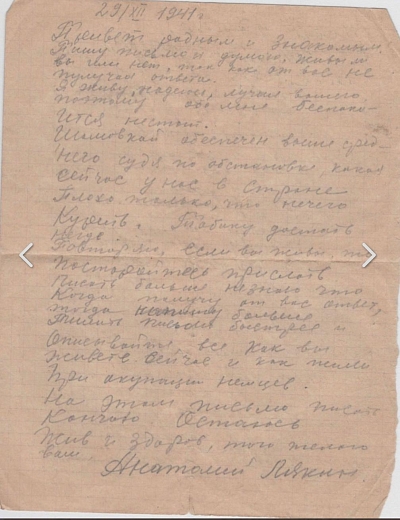 29/XII 1941 г
Привет родным и знакомым.
Пишу письмо и думаю, живы ли
вы или нет, так как от вас не
получаю ответа.
Я живу, надеюсь, лучше вашего
поэтому обо мне беспоко-
ится нестоит.
обеспечен выше сред-
него судя по обстановке какая
сейчас у нас в стране
Плохо только, что нечего
Курить. Табаку достать
негде
Повторяю, если вы живы, то
постарайтесь прислать
Писать больше незнаю что
Когда получу от вас ответ,
тогда напишу больше
Пишите письма быстрее и
Описывайте все как вы
живете сейчас и как жили
При окупации немцев.
На этом письмо писать
Кончаю Остаюсь
жив и здоров, того желаю
вам. Анатолий Лякин.